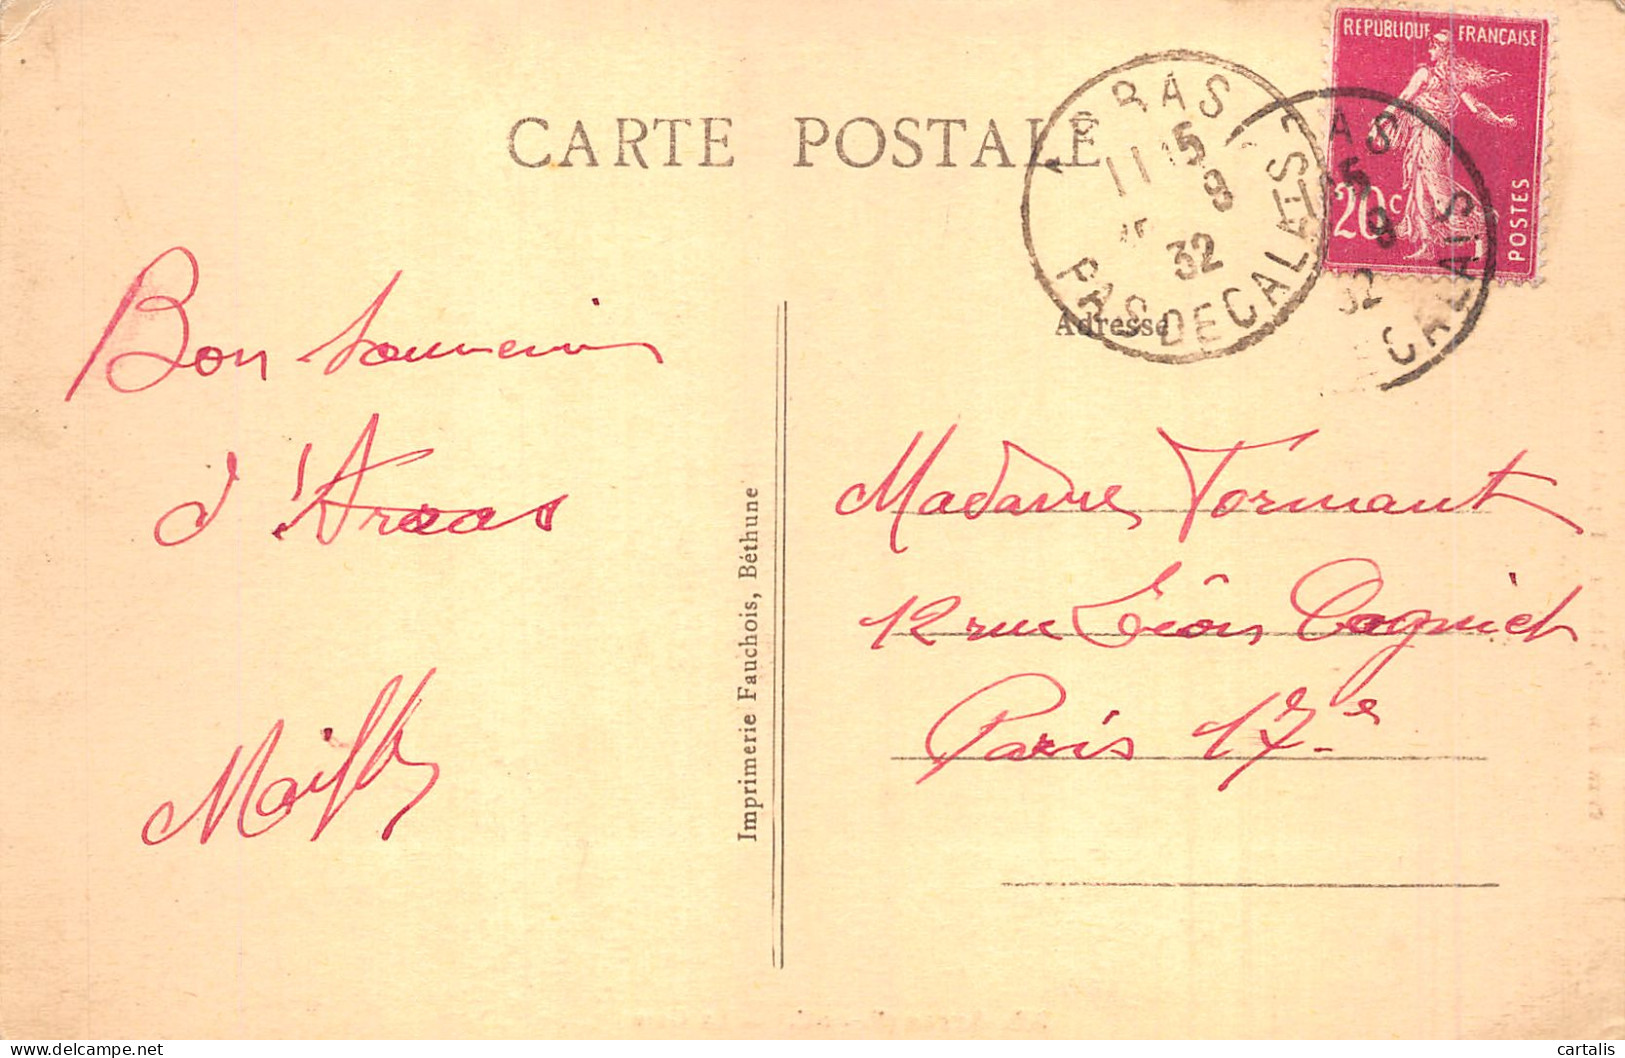 CARTE POSTALE
REPUBLIQUE FRANÇAISE
20c
POSTES
ARRAS
11 15
8
32
PAS DE CALAIS
RAS
15
8
32
CALAIS
Adresse
Bon souvenir
d'Arras
Imprimerie Fauchois, Béthune
Madame Tormant
12 rue Léon Cogniet
Paris 17e
cartalis